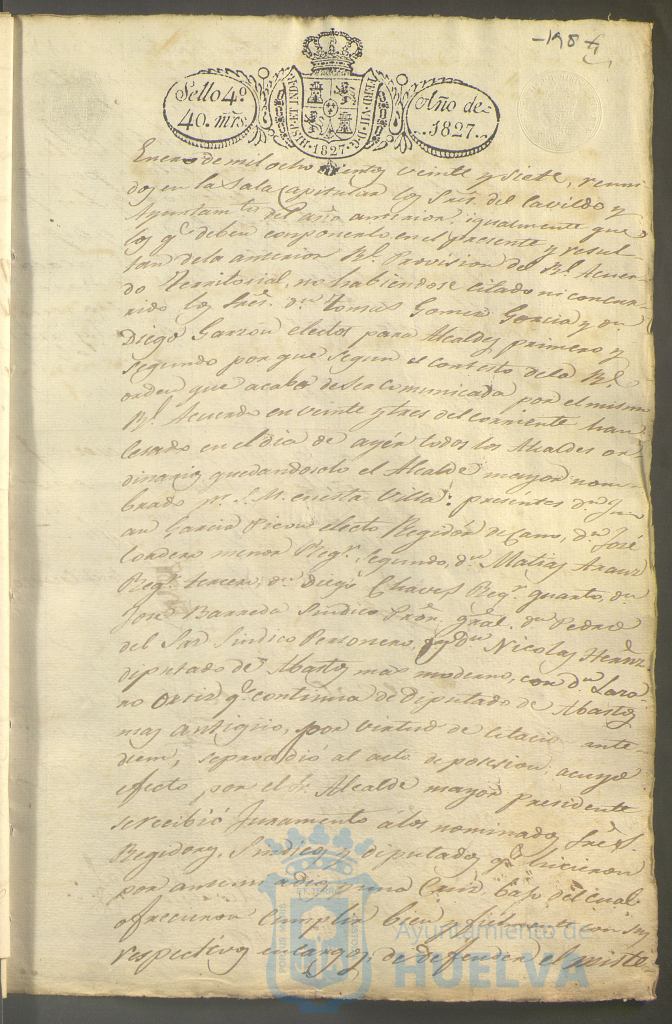 -198-
Sello 4º.
40. mrs.
HISP. ET IND. R.
FERD. VII. D. G.
·1827·
Año de
1827.
Enero de mil ocho cientos veinte y siete, reuni-
dos en la Sala Capitular los Srs. del Cavildo y
Ayuntamto. del año anterior, igualmente que
los qe. deben componerlo en el presente y resul-
tan dela anterior Rl. Provision del Rl. Acuer-
do Territorial, no habiendose citado ni concur-
rido los Sres. dn. Tomas Gomez Garcia y dn.
Diego Garzon electos para Alcaldes primero y
segundo por que segun el contesto dela Rl.
orden que acaba deser comunicada por el mismo
Rl. Acuerdo en veinte y tres del corriente han
cesado en el dia de ayer todos los Alcaldes or-
dinarios, quedando solo el Alcalde mayor nom-
brado pr. S. M. en esta Villa: presentes dn. Ju-
an Garcia Picon electo Regidor de cano, dn. José
Cordero menor Regr. segundo, dn. Matias Arauz
Regr. tercero, dn. Diego Chaves Regr. quarto, dn.
José Barreda Sindico Pror. gral. dn. Pedro
del Sar Sindico Personero, y dn. Nicolas Hernz.
diputado de Abastos mas moderno, con dn. Laza-
ro Ortiz qe. continua de Diputado de Abastos
mas antiguo, por virtud de citacion ante-
diem, se procedió al acto de posesion, acuyo
efecto, por el Sr. Alcalde mayor presidente
se recibió Juramento álos nominados Sres.
Regidores, Sindicos y diputados qe. hicieron
por ante mi a Dios y una Cruz bajo del cual
ofrecieron cumplir bien y fielmente con sus
respectivos encargos, de defender el misté-
Ayuntamiento de
HUELVA